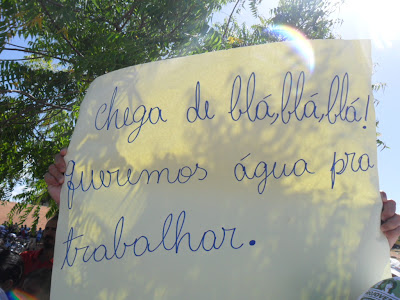 chega de blá,blá,blá!
queremos água pra
trabalhar.